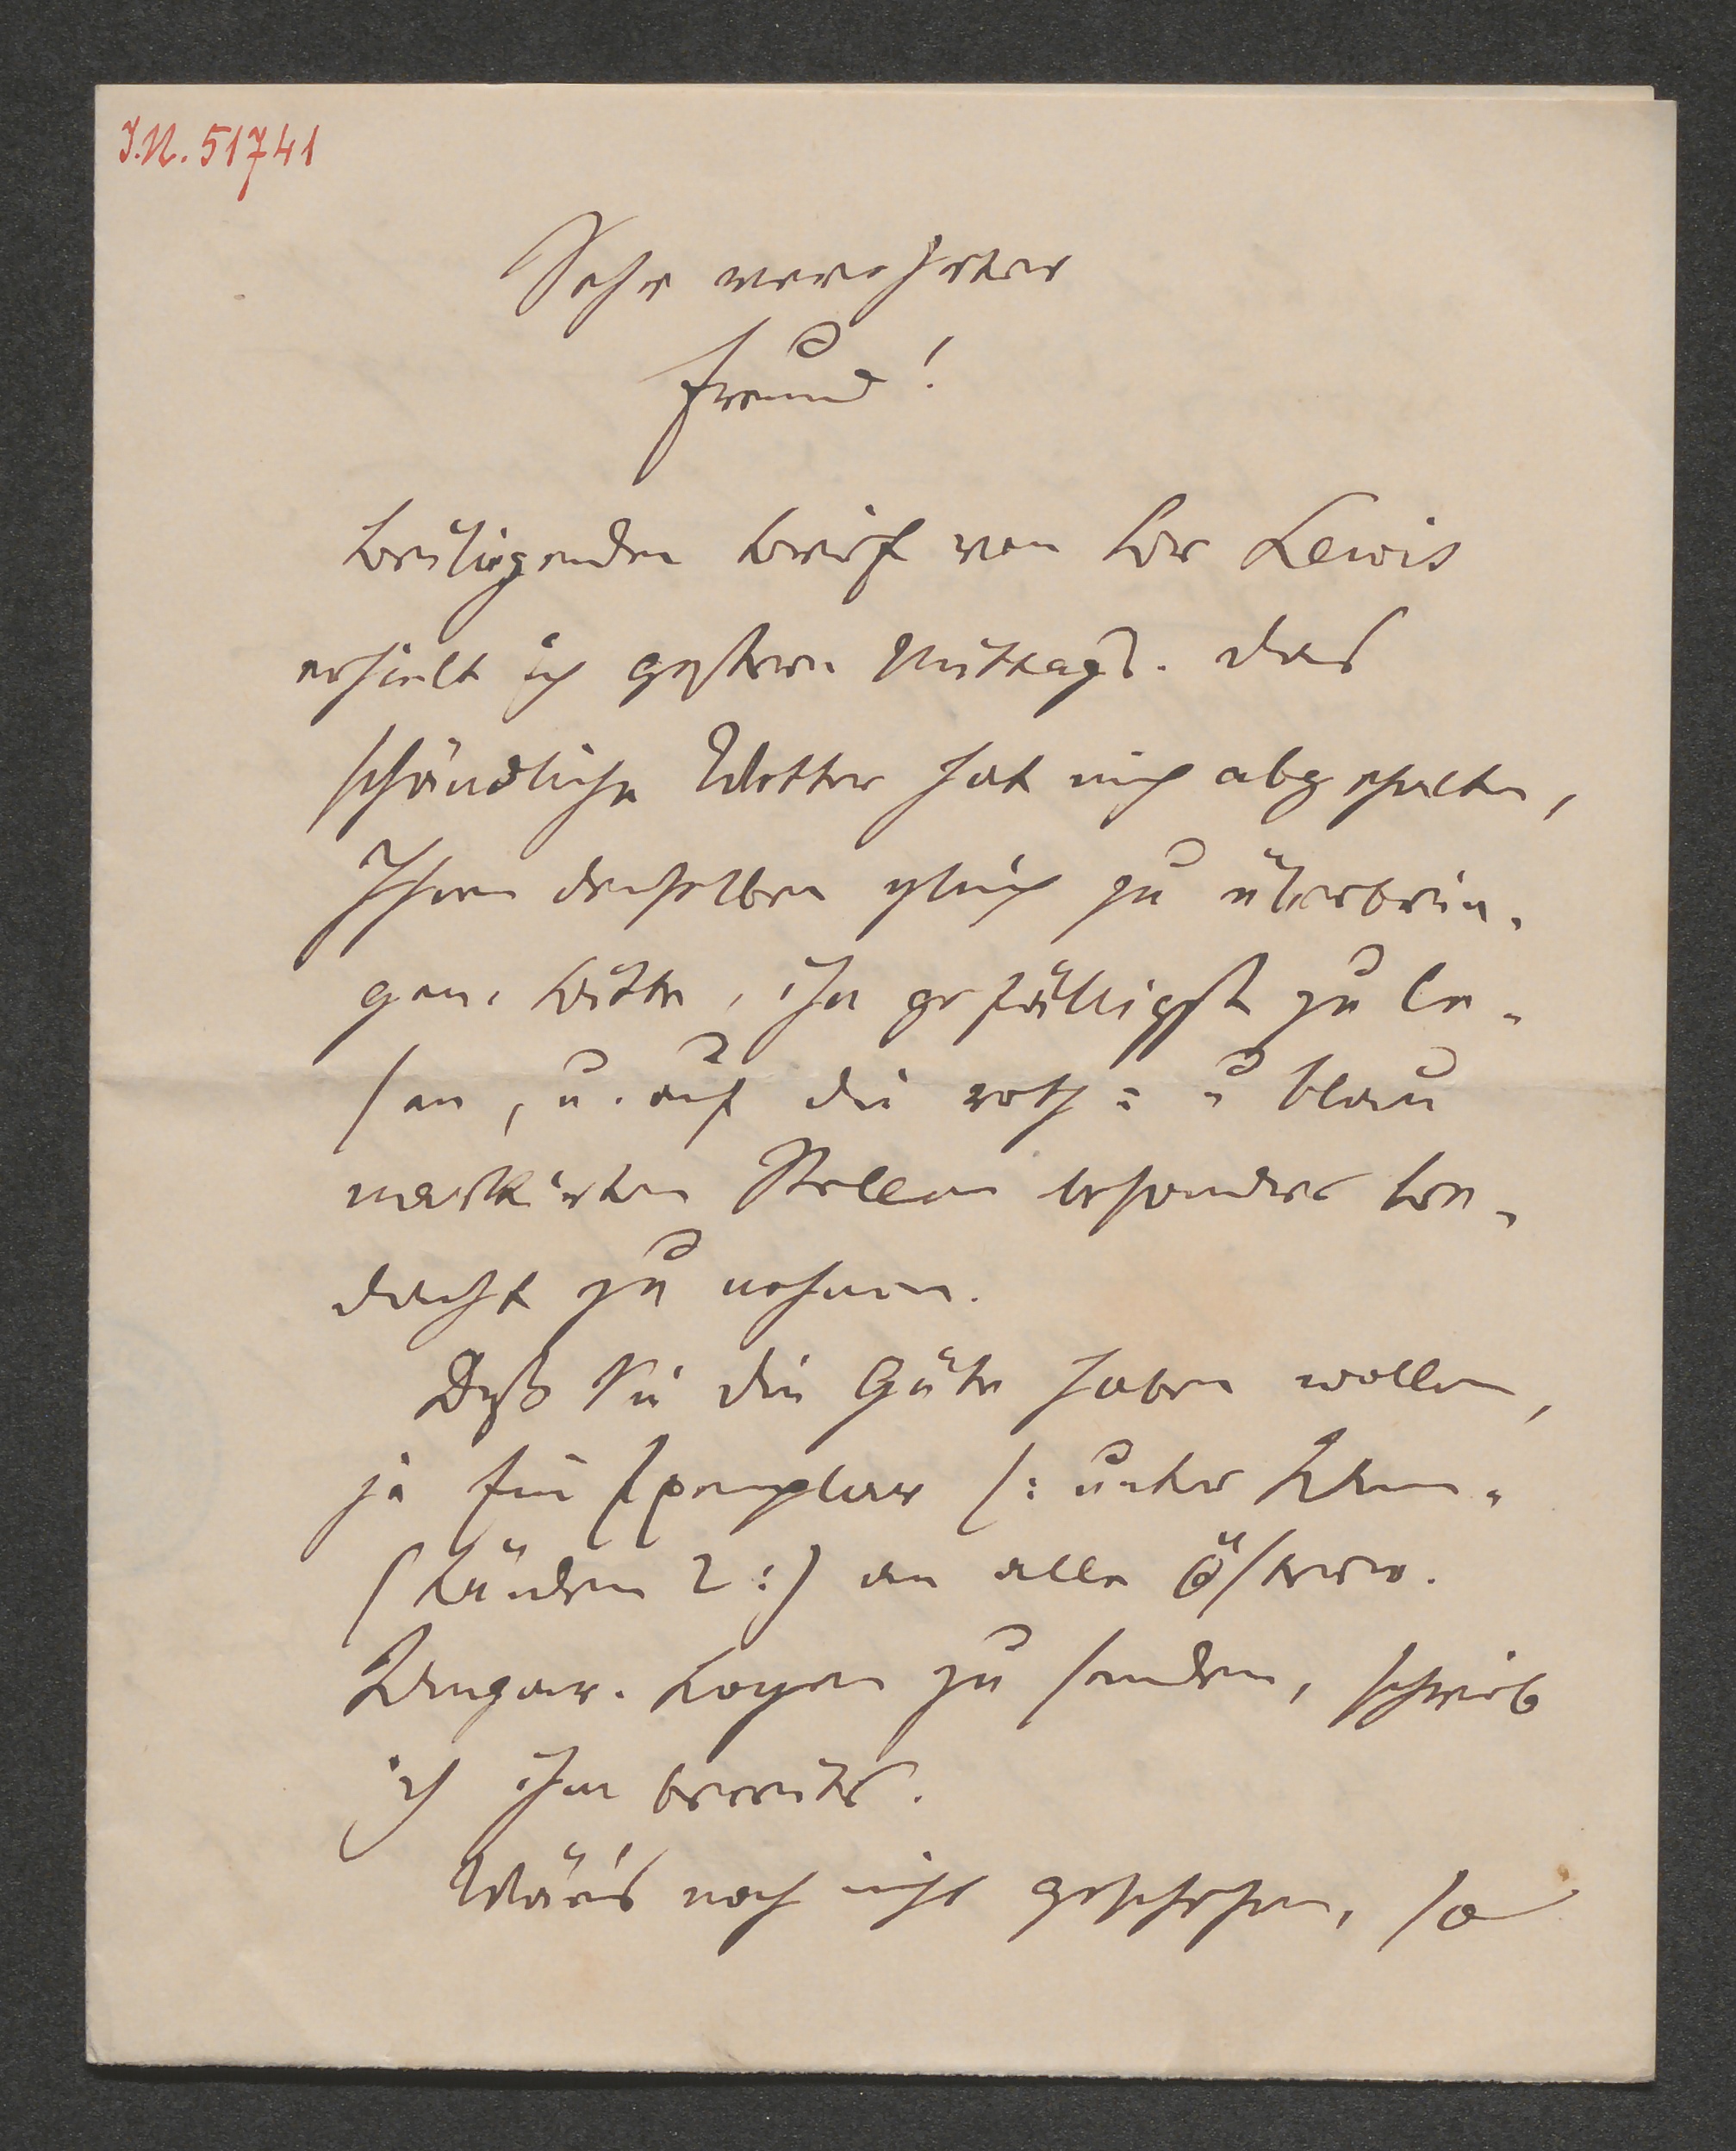 I.N. 51741
Sehr verehrter
Freund!
Beiliegenden Brief von Br Lewis
erhielt ich gestern Mittags. Das
schändliche Wetter hat mich abgehalten,
Ihnen denselben gleich zu überbrin-
gen. Bitte, ihn gefälligst zu le-
sen, u. auf die roth- u blau
markirten Stellen besonders Be-
dacht zu nehmen.
Daß Sie die Güte haben wollen,
je Ein Exemplar (: unter Um-
ständen 2 :) an alle Österr.
Ungar. Logen zu senden, schrieb
ich ihm bereits.
Wär's noch nicht geschehen, so